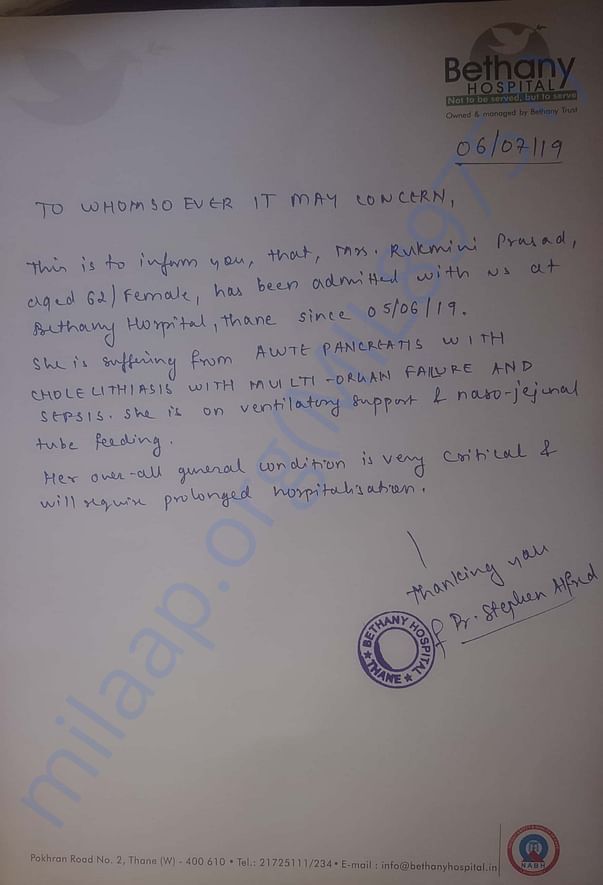 Bethany
HOSPITAL
Not to be served, but to serve
Owned & managed by Bethany Trust
06/07/19
TO WHOMSO EVER IT MAY CONCERN,
This is to inform you, that, Mrs. Rukmini Prasad,
aged 62/Female, has been admitted with us at
Bethany Hospital, Thane since 05/06/19.
She is suffering from AWTE PANCREATIS WITH
CHOLELITHIASIS WITH MULTI-ORGAN FAILURE AND
SEPSIS. She is on ventilatory support & naso-jejunal
tube feeding.
Her over-all general condition is very critical &
will require prolonged hospitalisation.
Thanking you
Dr. Stephen Alfred
BETHANY HOSPITAL
THANE
milaap.org(MIL8975
Pokhran Road No. 2, Thane (W) - 400 610 • Tel.: 21725111/234 • E-mail : info@bethanyhospital.in
NABH